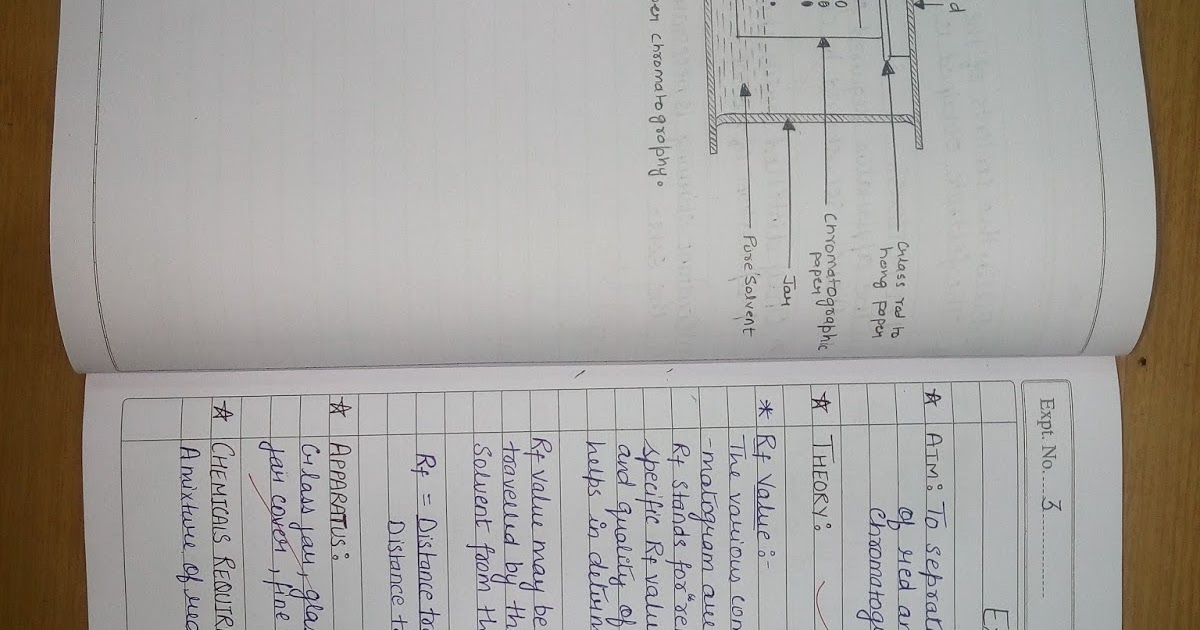 d
Glass rod to
hang paper
Chromatographic
paper
Jar
Pure Solvent
per chromatography.
Expt. No. 3
E
☆ AIM: To seprat
of red an
chromatog
☆ THEORY:
* Rf Value :-
The various con
-matogram are
Rf stands for "re
specific Rf valu
and quality of
helps in determ
Rf value may be
travelled by th
Solvent from th
Rf = Distance tra
Distance t
☆ APPARATUS:
Glass jar, glas
jar cover, fine
☆ CHEMICALS REQUIR
A mixture of